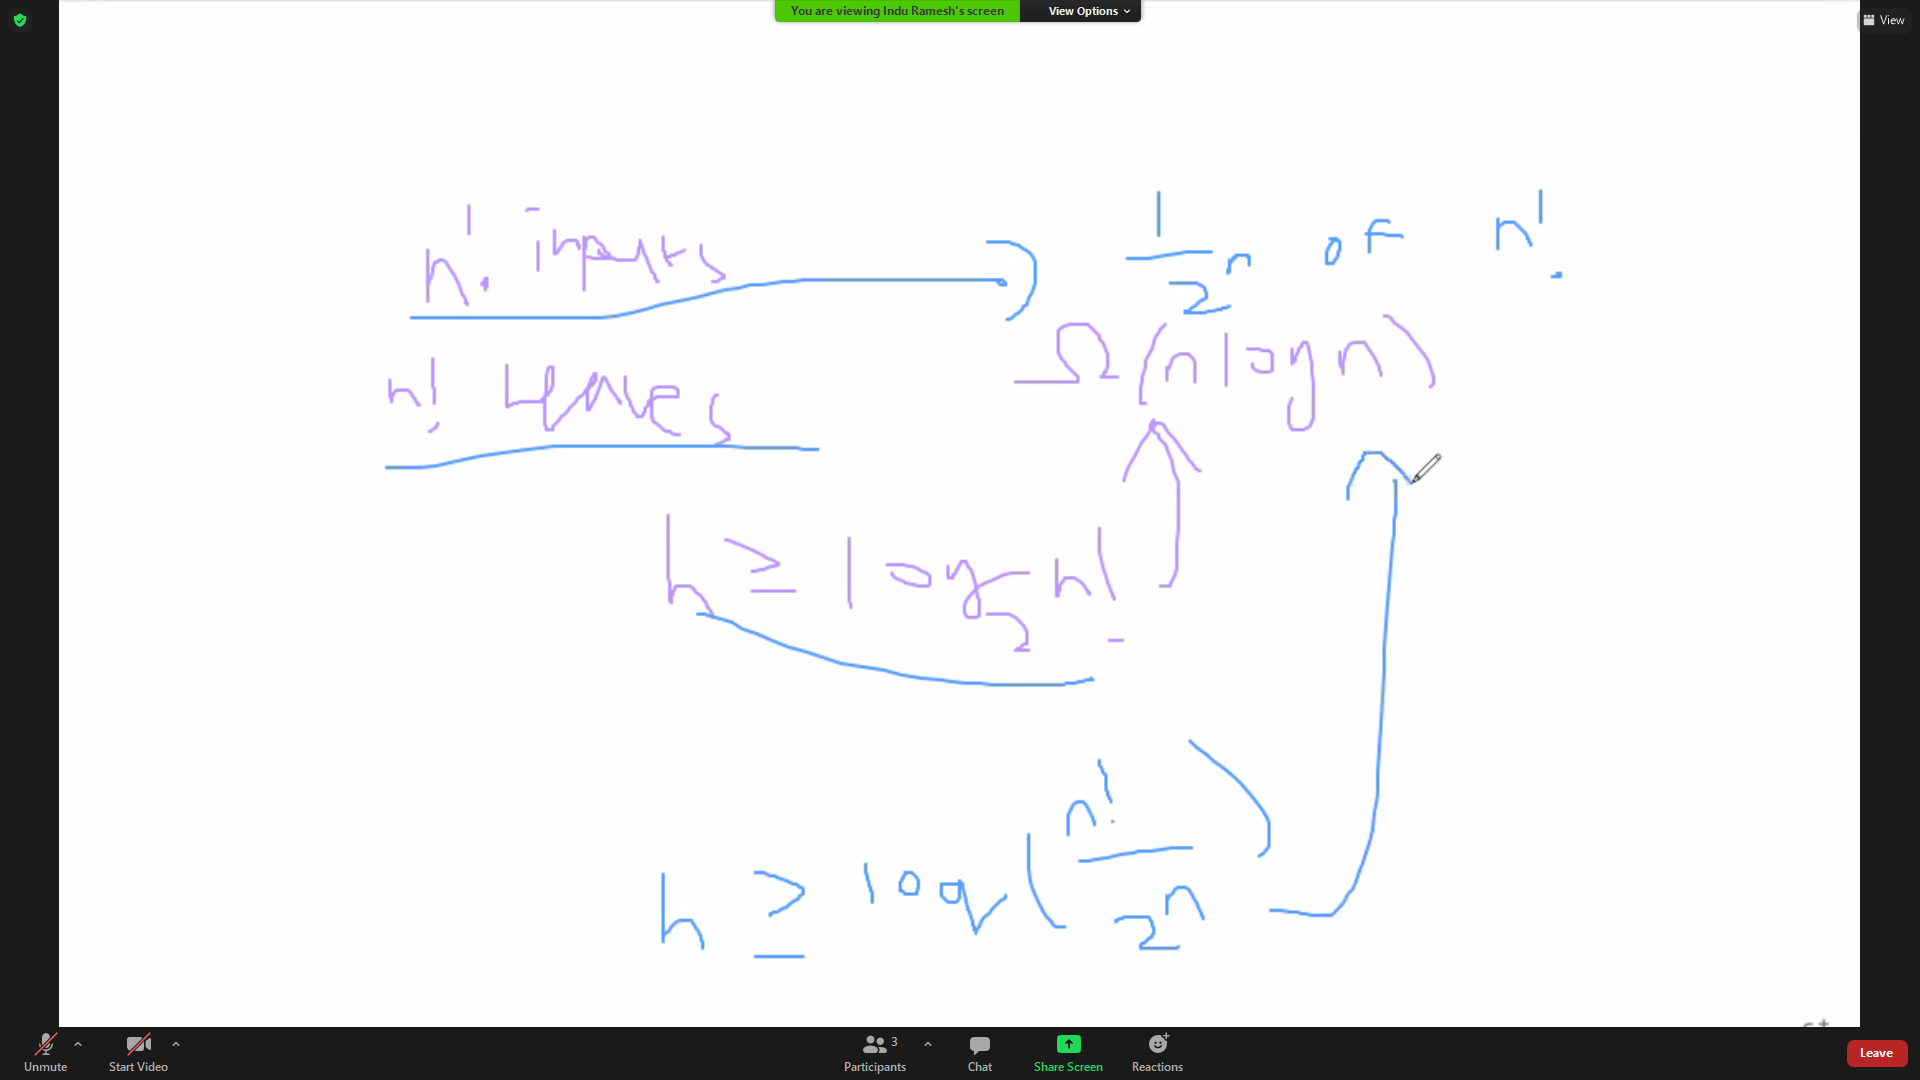 You are viewing Indu Ramesh's screen
View Options
View
n! inputs
1/2^n of n!
Ω(n log n)
n! Leaves
h ≥ log_2 n!
h ≥ log(n!/2^n)
Unmute
Start Video
Participants
3
Chat
Share Screen
Reactions
Leave